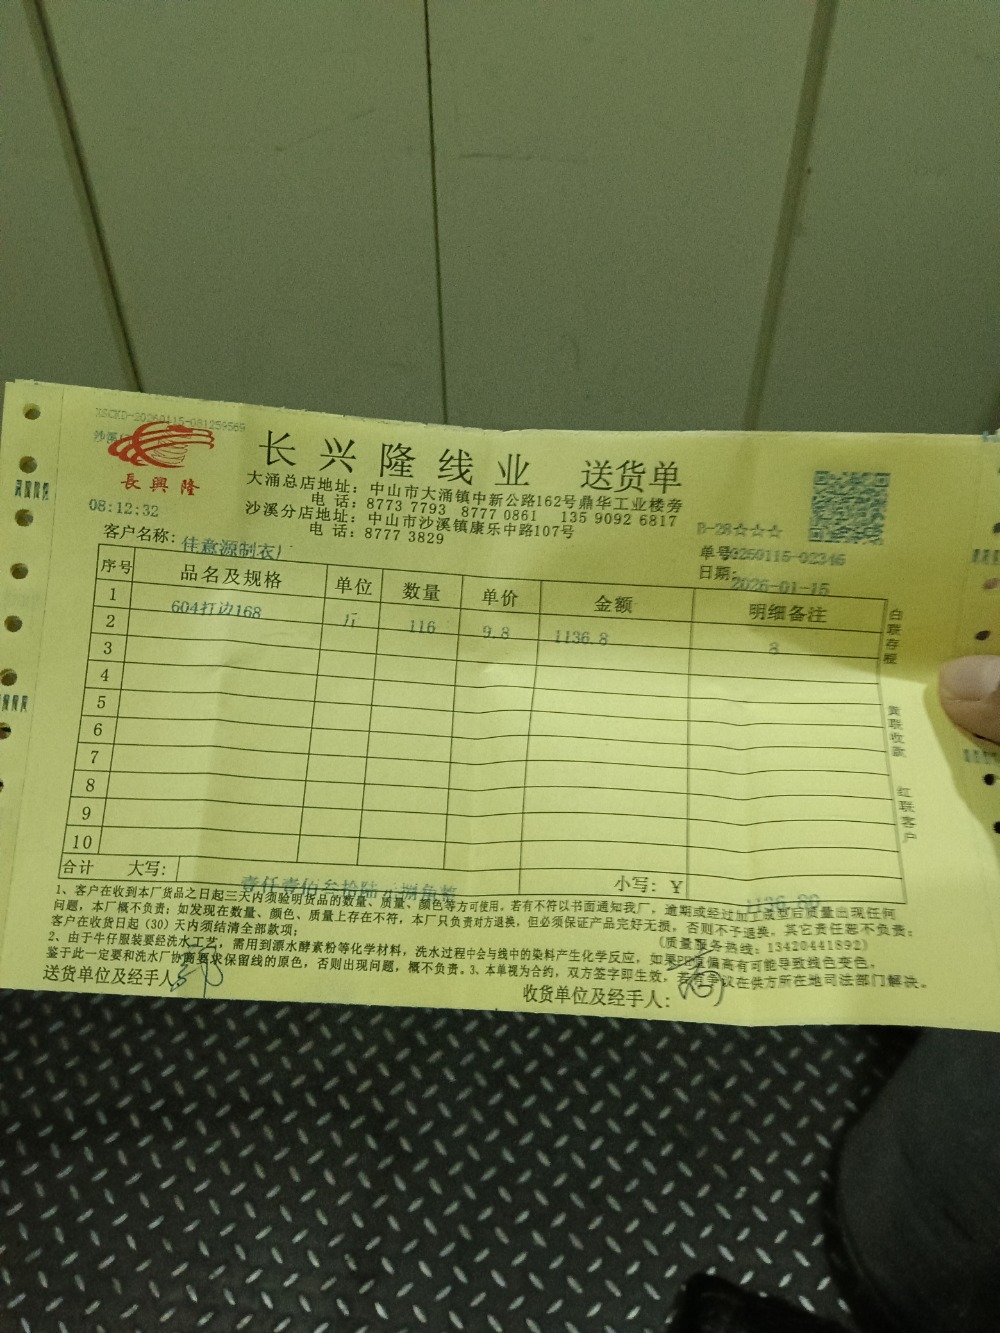 XSCKD-20260115-081259569
沙溪
長興隆
长兴隆线业 送货单
大涌总店地址：中山市大涌镇中新公路162号鼎华工业楼旁
电话：8773 7793 8777 0861 135 9092 6817
沙溪分店地址：中山市沙溪镇康乐中路107号
电话：8777 3829
08:12:32
B-28☆☆☆
客户名称：佳意源制衣厂
单号：0260115-02346
日期：2026-01-15
序号 品名及规格 单位 数量 单价 金额 明细备注
1 604打边168 斤 116 9.8 1136.8 8
2
3
4
5
6
7
8
9
10
合计 大写：壹仟壹佰叁拾陆元捌角整 小写：￥1136.80
白联存根
黄联收款
红联客户
1、客户在收到本厂货品之日起三天内须验明货品的数量、质量、颜色等方可使用，若有不符以书面通知我厂，逾期或经过加工成型后质量出现任何
问题，本厂概不负责；如发现在数量、颜色、质量上存在不符，本厂只负责对方退换，但必须保证产品完好无损，否则不予退换，其它责任恕不负责；
客户在收货日起（30）天内须结清全部款项； （质量服务热线：13420441892）
2、由于牛仔服装要经洗水工艺，需用到漂水酵素粉等化学材料，洗水过程中会与线中的染料产生化学反应，如果PH值偏高有可能导致线色变色，
鉴于此一定要和洗水厂协商要求保留线的原色，否则出现问题，概不负责。3、本单视为合约，双方签字即生效，若有争议在供方所在地司法部门解决。
送货单位及经手人：
收货单位及经手人：